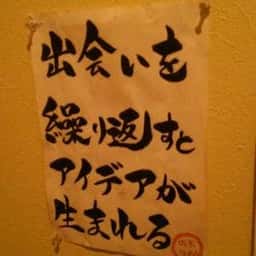 出会いを
繰り返すと
アイデアが
生まれる